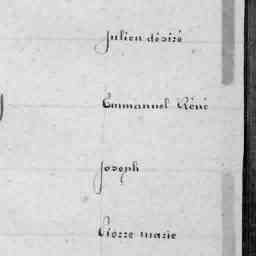 Julien désiré
Emmanuel Réné
Joseph
Pierre marie